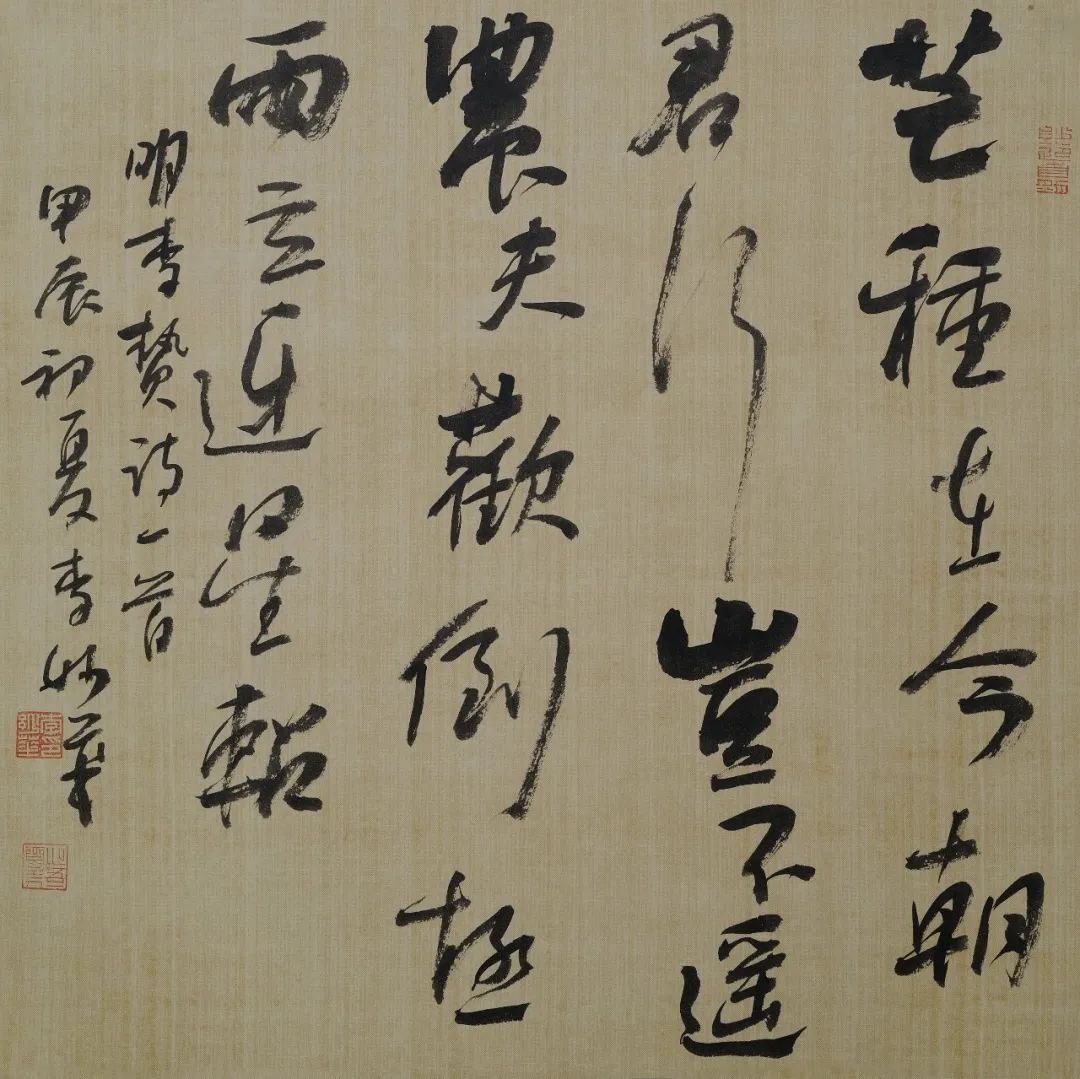 芒種在今朝
君行豈不遥
農夫歡倒極
雨立迓星軺
明李贄詩一首
甲辰初夏李華